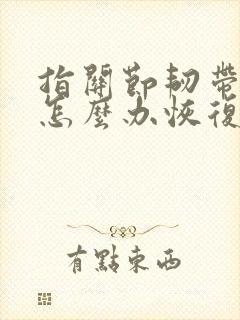 指關節韌帶
怎麼办恢復
有點東西